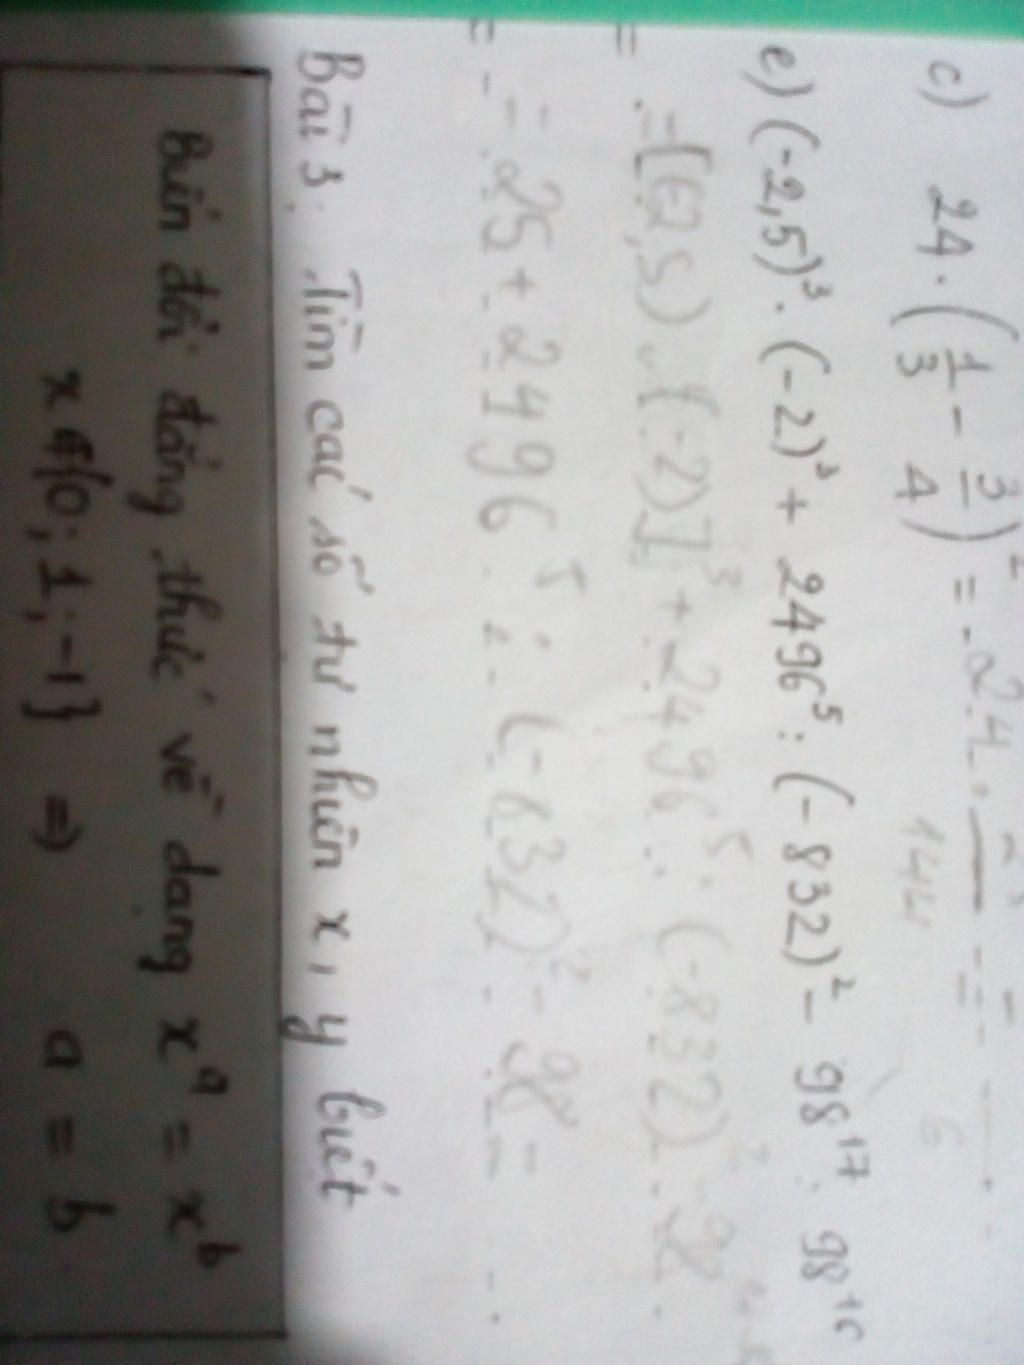 c) 24 . (1/3 - 3/4)² = 24 . 144 6
e) (-2,5)³ . (-2)³ + 2496⁵ : (-832)² - 98¹⁷ : 98¹⁶
= [(-2,5) . (-2)]³ + 2496⁵ : (-832)² - 98
= 25 + 2496⁵ : (-832)² - 98 =
Bài 3. Tìm các số tự nhiên x, y biết
Biến đổi đẳng thức về dạng xᵃ = xᵇ
x ∉ {0; 1; -1} ⇒ a = b